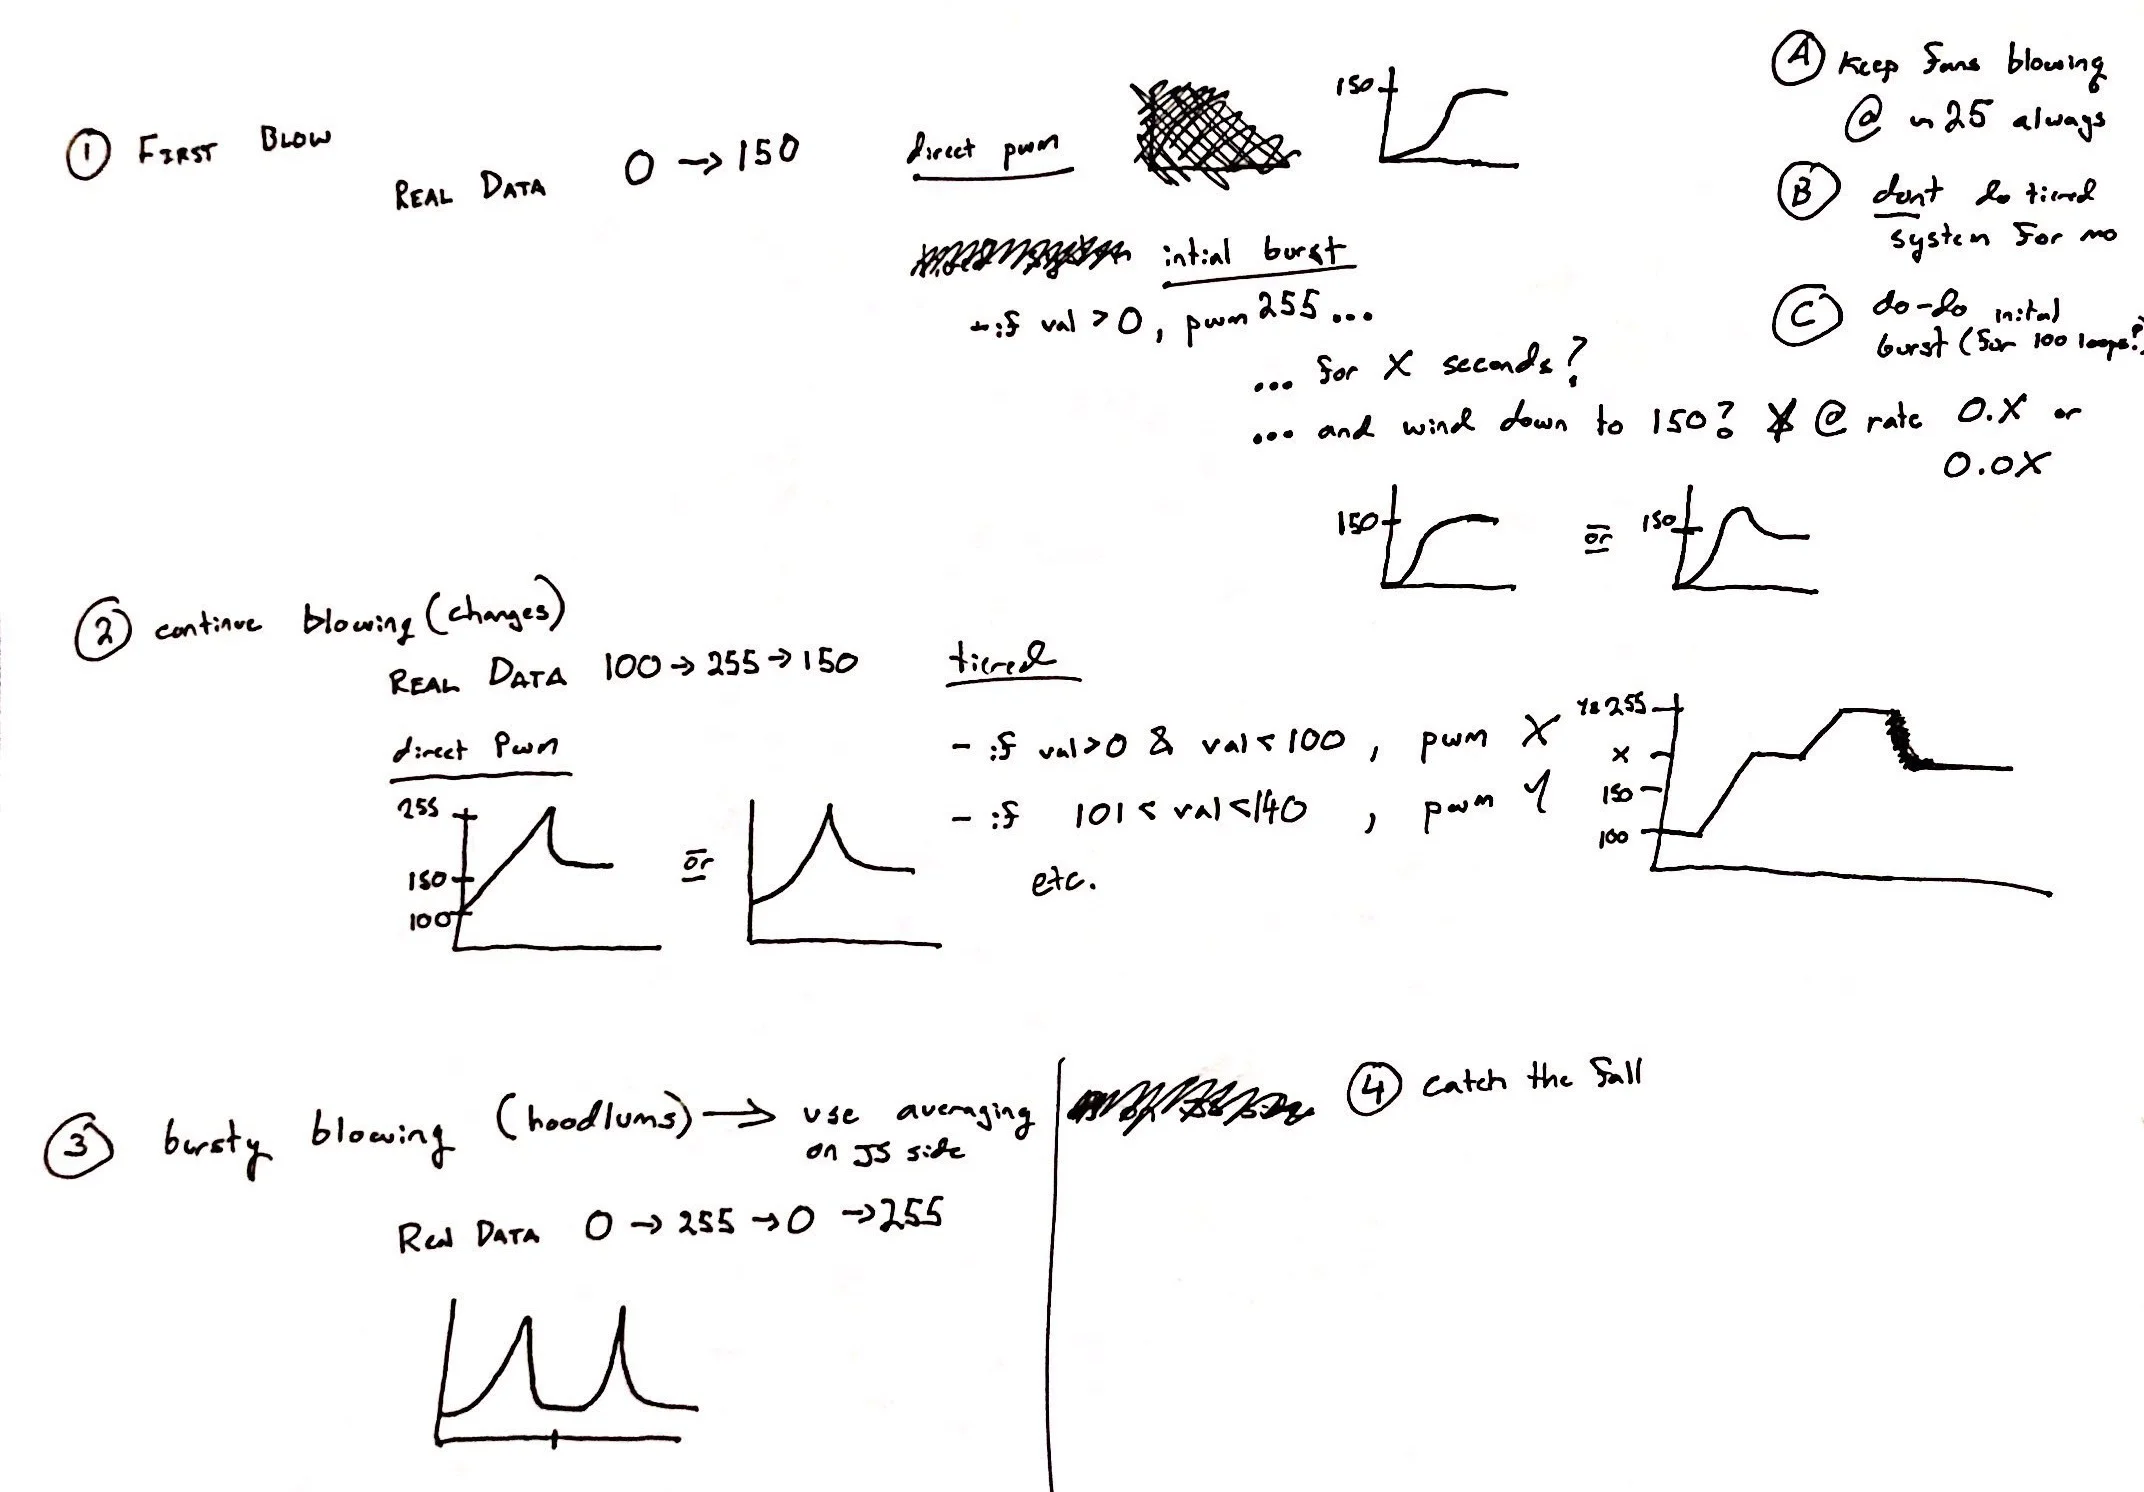 ① FIRST BLOW
REAL DATA 0 → 150
direct pwm
150
intial burst
- if val > 0, pwm 255 ...
... for X seconds?
... and wind down to 150? @ rate 0.X or
0.0X
150
or
150
Ⓐ Keep fans blowing
@ ~ 25 always
Ⓑ dont do tiered
system for mo
Ⓒ do-do inital
burst (for 100 loops?)
② continue blowing (changes)
REAL DATA 100 → 255 → 150
direct Pwm
255
150
100
or
tiered
- if val>0 & val<100, pwm X
- if 101 < val < 140, pwm Y
etc.
Y=255
X
150
100
③ bursty blowing (hoodlums) → use averaging
on JS side
Real DATA 0 → 255 → 0 → 255
④ catch the fall